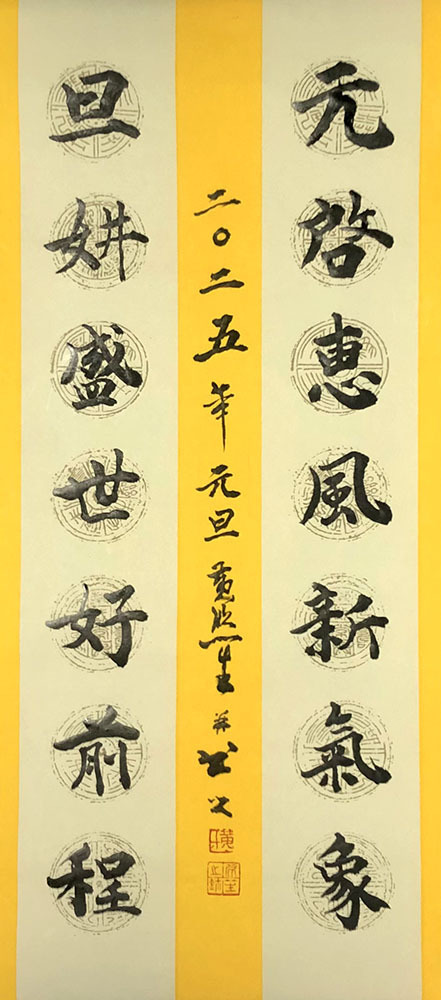 元啓惠風新氣象
二〇二五年元旦黄生并书
旦妍盛世好前程